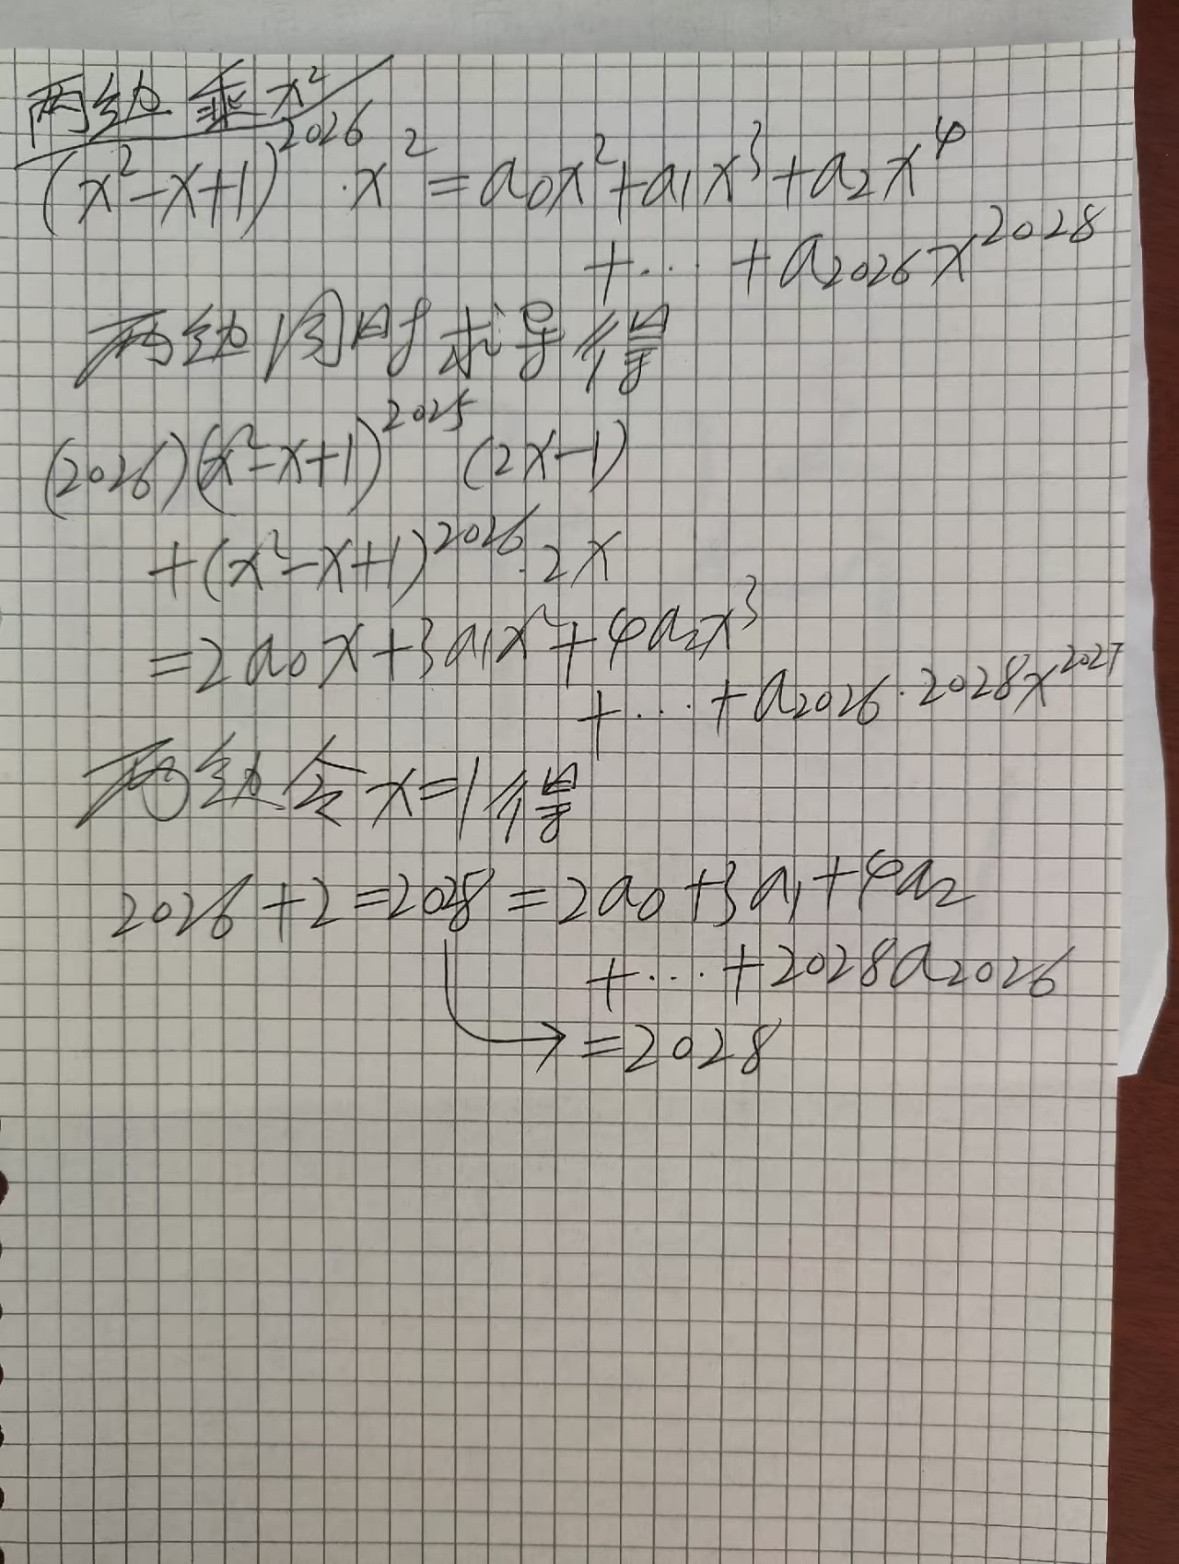 两边乘x²
(x²-x+1)²⁰²⁶·x²=a₀x²+a₁x³+a₂x⁴
+…+a₂₀₂₆x²⁰²⁸
两边同时求导得
(2026)(x²-x+1)²⁰²⁵(2x-1)
+(x²-x+1)²⁰²⁶·2x
=2a₀x+3a₁x²+4a₂x³
+…+a₂₀₂₆·2028x²⁰²⁷
两边令x=1得
2026+2=2028=2a₀+3a₁+4a₂
+…+2028a₂₀₂₆
→=2028